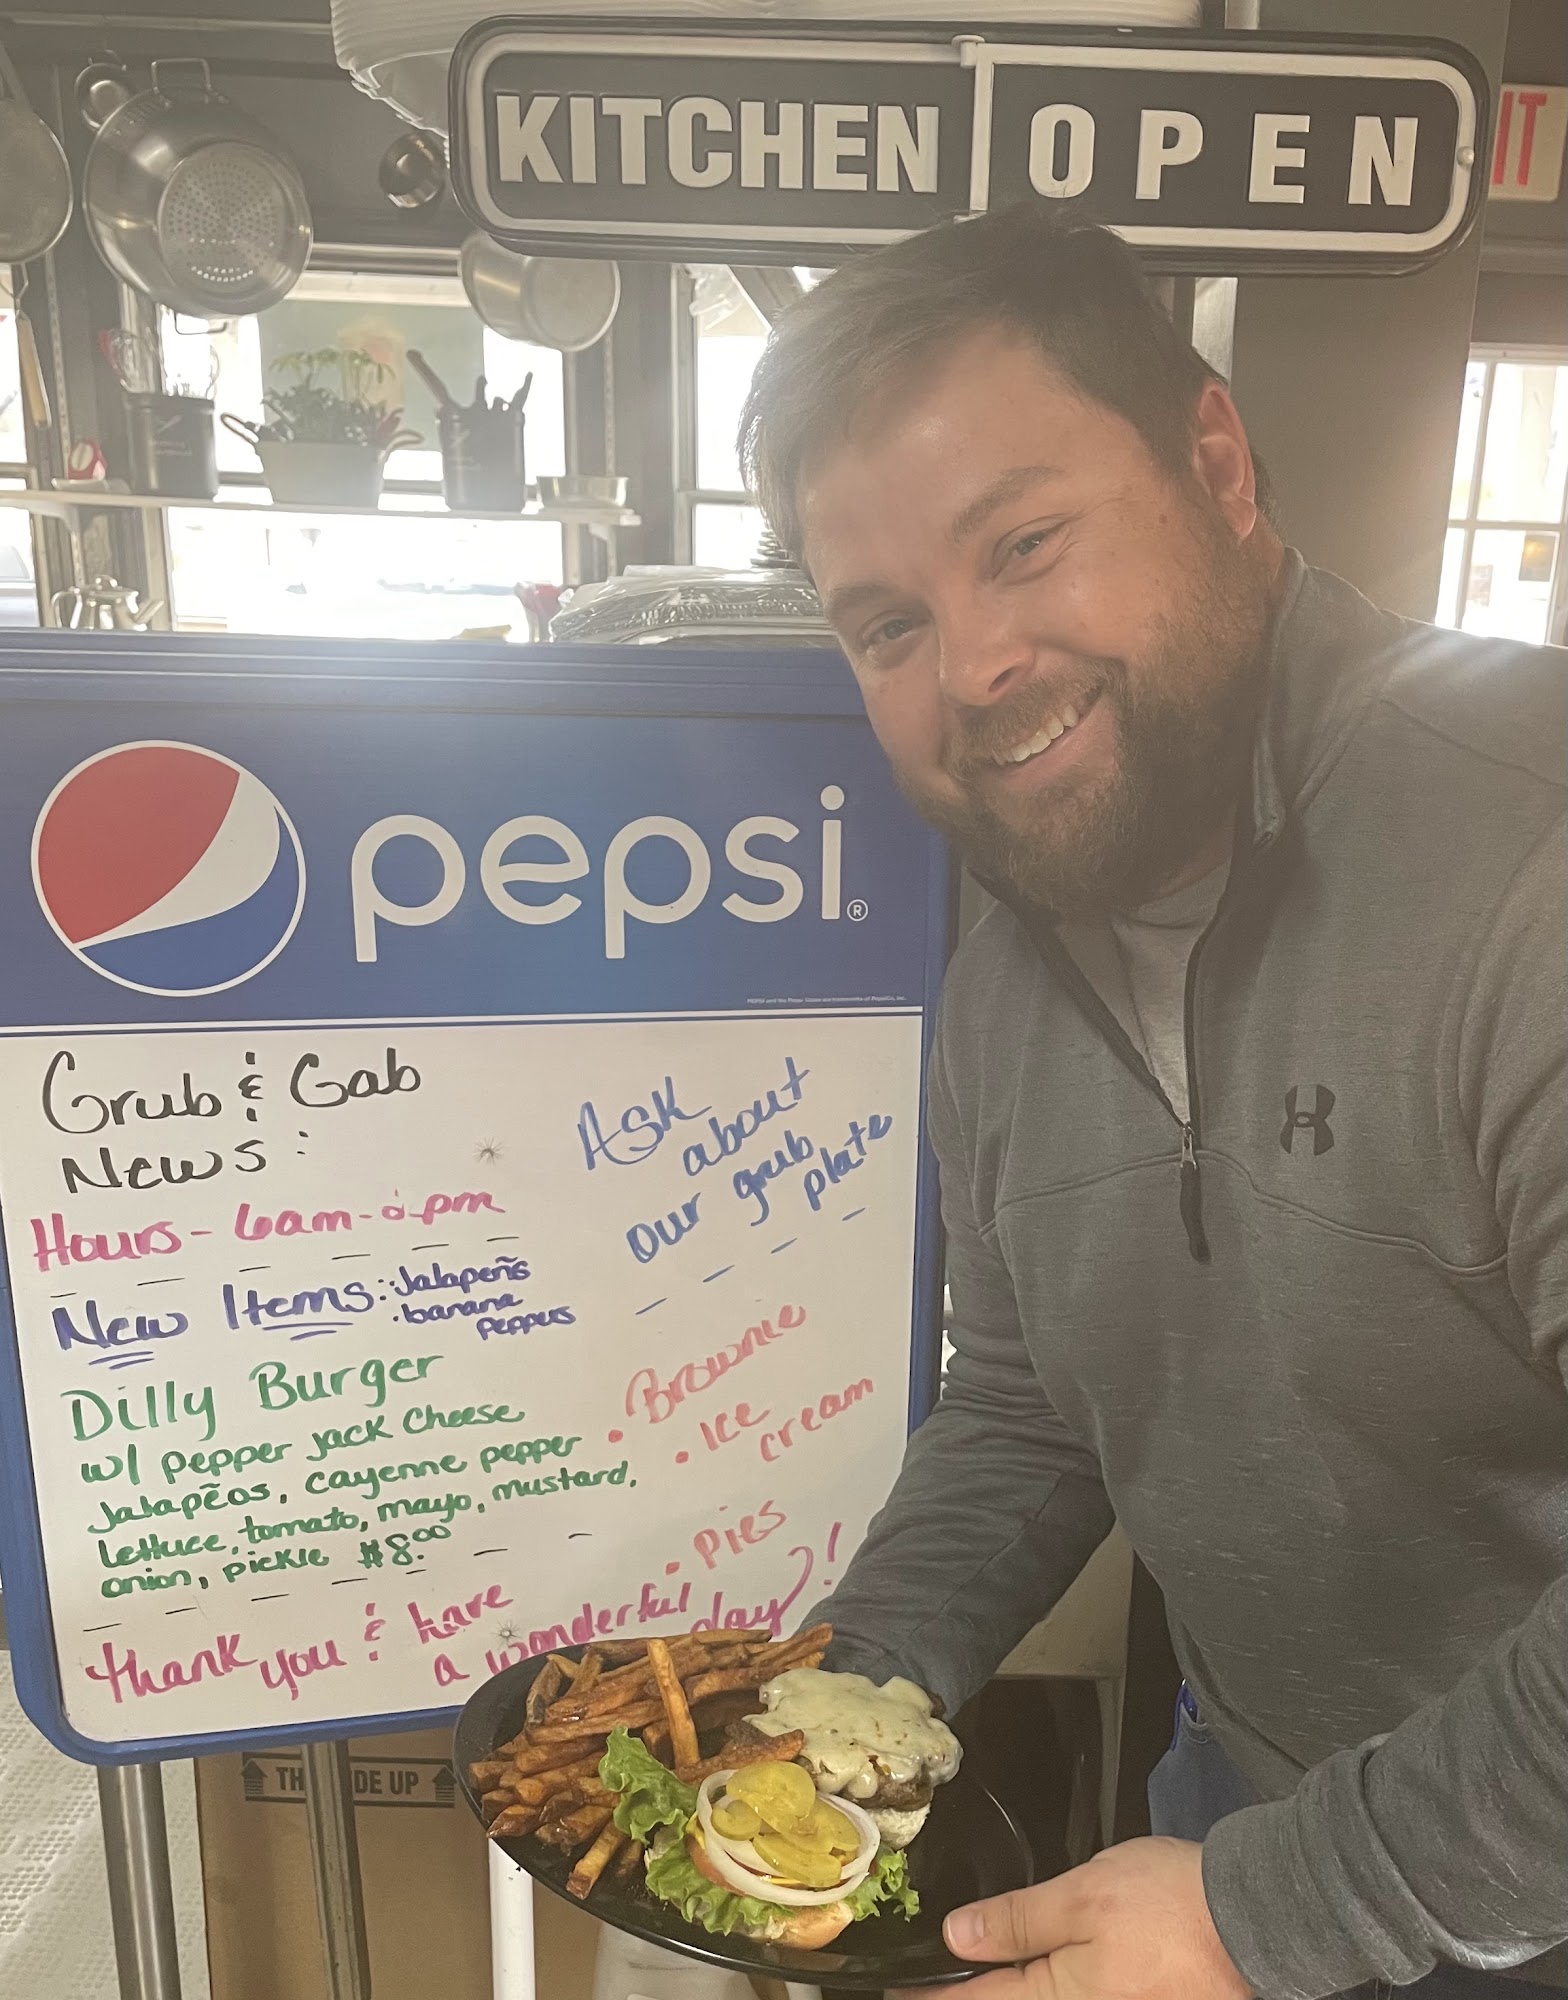 KITCHEN OPEN
IT
pepsi®
Grub & Gab
News:
Hours - 6am -
New Items: Jalapeñs
. banana
peppers
Dilly Burger
w/ pepper jack cheese
Jalapẽos, cayenne pepper
lettuce, tomato, mayo, mustard,
onion, pickle $8.00
Ask
about
our grub
plate
• Brownie
• Ice
cream
• Pies
Thank you & have
a wonderful
day!
TH DE UP